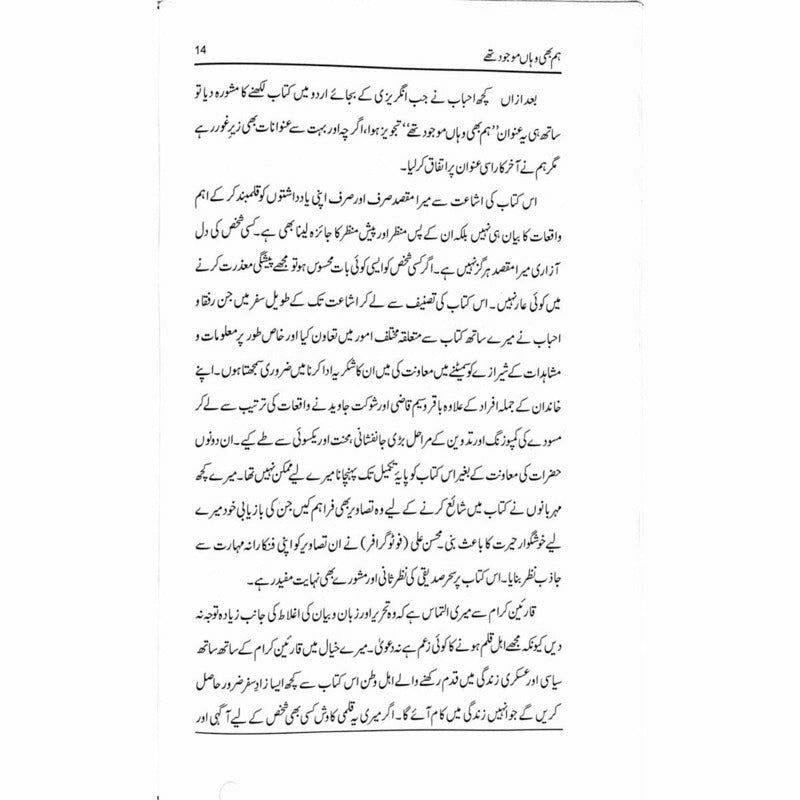 ہم بھی وہاں موجود تھے 14
بعد ازاں کچھ احباب نے جب انگریزی کے بجائے اردو میں کتاب لکھنے کا مشورہ دیا تو
ساتھ ہی یہ عنوان ”ہم بھی وہاں موجود تھے“ تجویز ہوا، اگرچہ اور بہت سے عنوانات بھی زیرِ غور رہے
مگر ہم نے آخر کار اسی عنوان پر اتفاق کر لیا۔
اس کتاب کی اشاعت سے میرا مقصد صرف اور صرف اپنی یادداشتوں کو قلمبند کر کے اہم
واقعات کا بیان ہی نہیں بلکہ ان کے پس منظر اور پیش منظر کا جائزہ لینا بھی ہے۔ کسی شخص کی دل
آزاری میرا مقصد ہرگز نہیں ہے۔ اگر کسی شخص کو ایسی کوئی بات محسوس ہو تو مجھے پیشگی معذرت کرنے
میں کوئی عار نہیں۔ اس کتاب کی تصنیف سے لے کر اشاعت تک کے طویل سفر میں جن رفقا و
احباب نے میرے ساتھ کتاب سے متعلقہ مختلف امور میں تعاون کیا اور خاص طور پر معلومات و
مشاہدات کے شیرازے کو سمیٹنے میں معاونت کی میں ان کا شکریہ ادا کرنا میں ضروری سمجھتا ہوں۔ اپنے
خاندان کے جملہ افراد کے علاوہ باقر وسیم قاضی اور شوکت جاوید نے واقعات کی ترتیب سے لے کر
مسودے کی کمپوزنگ اور تدوین کے مراحل بڑی جانفشانی، محنت اور یکسوئی سے طے کیے۔ ان دونوں
حضرات کی معاونت کے بغیر اس کتاب کو پایۂ تکمیل تک پہنچانا میرے لیے ممکن نہیں تھا۔ میرے کچھ
مہربانوں نے کتاب میں شائع کرنے کے لیے وہ تصاویر بھی فراہم کیں جن کی بازیابی خود میرے
لیے خوشگوار حیرت کا باعث بنی۔ محسن علی (فوٹوگرافر) نے ان تصاویر کو اپنی فنکارانہ مہارت سے
جاذب نظر بنایا۔ اس کتاب پر سحر صدیقی کی نظر ثانی اور مشورے بھی نہایت مفید رہے۔
قارئین کرام سے میری التماس ہے کہ وہ تحریر اور زبان و بیان کی اغلاط کی جانب زیادہ توجہ نہ
دیں کیونکہ مجھے اہل قلم ہونے کا کوئی زعم ہے نہ دعویٰ۔ میرے خیال میں قارئین کرام کے ساتھ ساتھ
سیاسی اور عسکری زندگی میں قدم رکھنے والے اہل وطن اس کتاب سے کچھ ایسا زادِ سفر ضرور حاصل
کریں گے جو انہیں زندگی میں کام آئے گا۔ اگر میری یہ قلمی کاوش کسی بھی شخص کے لیے آگہی اور